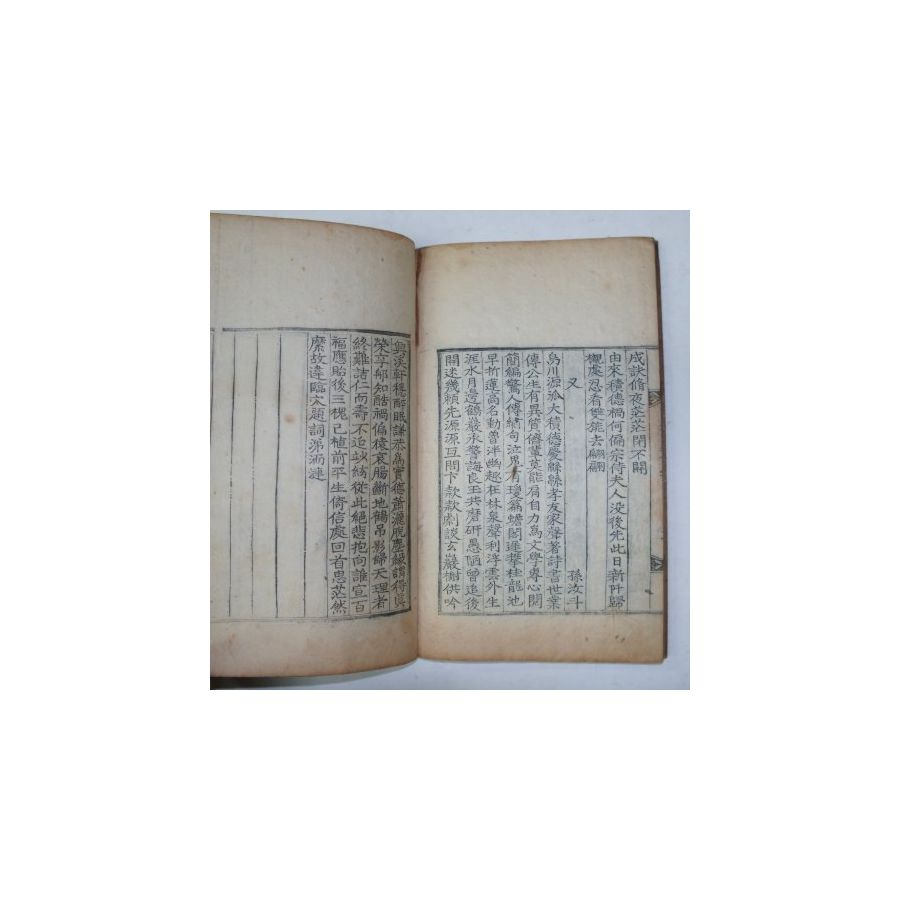 成訣脩夜茫茫閉不開
由來積德禍何偏宗侍夫人没後先此日新阡歸
櫬處忍看雙旐去翩翩
又
孫汝斗
烏川源派大積德慶緜緜孝友家聲著詩書世業
傳公生有異質儕輩莫能肩自力為文學專心閱
簡編驚人傳繡句泣界有瓊篇蟾闕遲攀桂龍池
早折蓮高名動曾泮幽趣在林泉聲利浮雲外生
涯水月邊鶴巖承警誨良玉共磨研愚陋曾追後
開迷幾賴先源源互問卞款款劇談玄巖榭供吟
興溪軒穩醉眠謙恭為實德蕭灑脫塵緣謂得眞
榮享那知酷禍偏猿哀腸斷地鶴吊影歸天理者
終難詰仁而壽不延竛竮從此絕悲抱向誰宣百
福應貽後三槐已植前平生倚信處回首思茫然
縻故違臨穴題詞涕泗漣